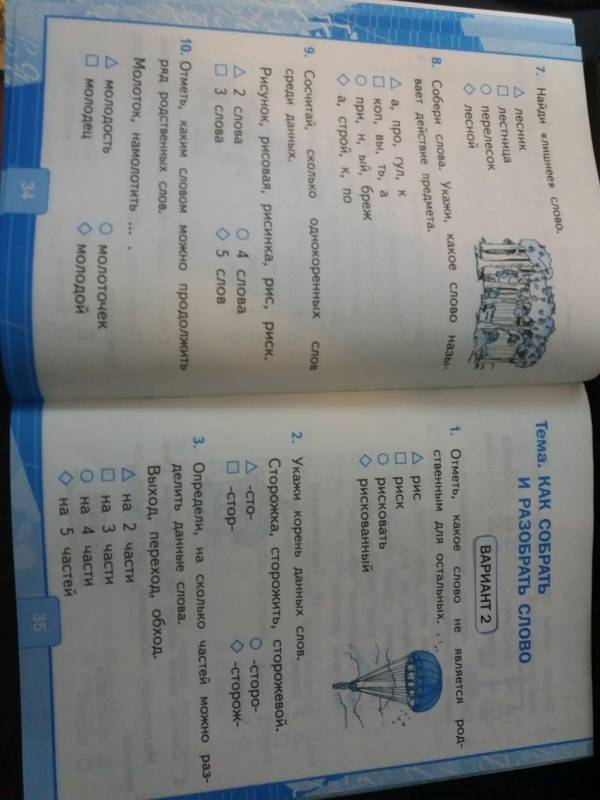 7. Найди «лишнее» слово.
△ лесник
□ лестница
○ перелесок
◇ лесной
8. Собери слова. Укажи, какое слово назы-
вает действие предмета.
△ а, про, гул, к
□ коп, вы, ть, а
○ при, н, ый, бреж
◇ а, строй, к, по
9. Сосчитай, сколько однокоренных слов
среди данных.
Рисунок, рисовая, рисинка, рис, риск.
△ 2 слова ○ 4 слова
□ 3 слова ◇ 5 слов
10. Отметь, каким словом можно продолжить
ряд родственных слов.
Молоток, намолотить ... .
△ молодость ○ молоточек
□ молодец ◇ молодой
34
Тема. КАК СОБРАТЬ
И РАЗОБРАТЬ СЛОВО
ВАРИАНТ 2
1. Отметь, какое слово не является род-
ственным для остальных.
△ рис
□ риск
○ рисковать
◇ рискованный
2. Укажи корень данных слов.
Сторожка, сторожить, сторожевой.
△ -сто- ○ -сторо-
□ -стор- ◇ -сторож-
3. Определи, на сколько частей можно раз-
делить данные слова.
Выход, переход, обход.
△ на 2 части
□ на 3 части
○ на 4 части
◇ на 5 частей
35